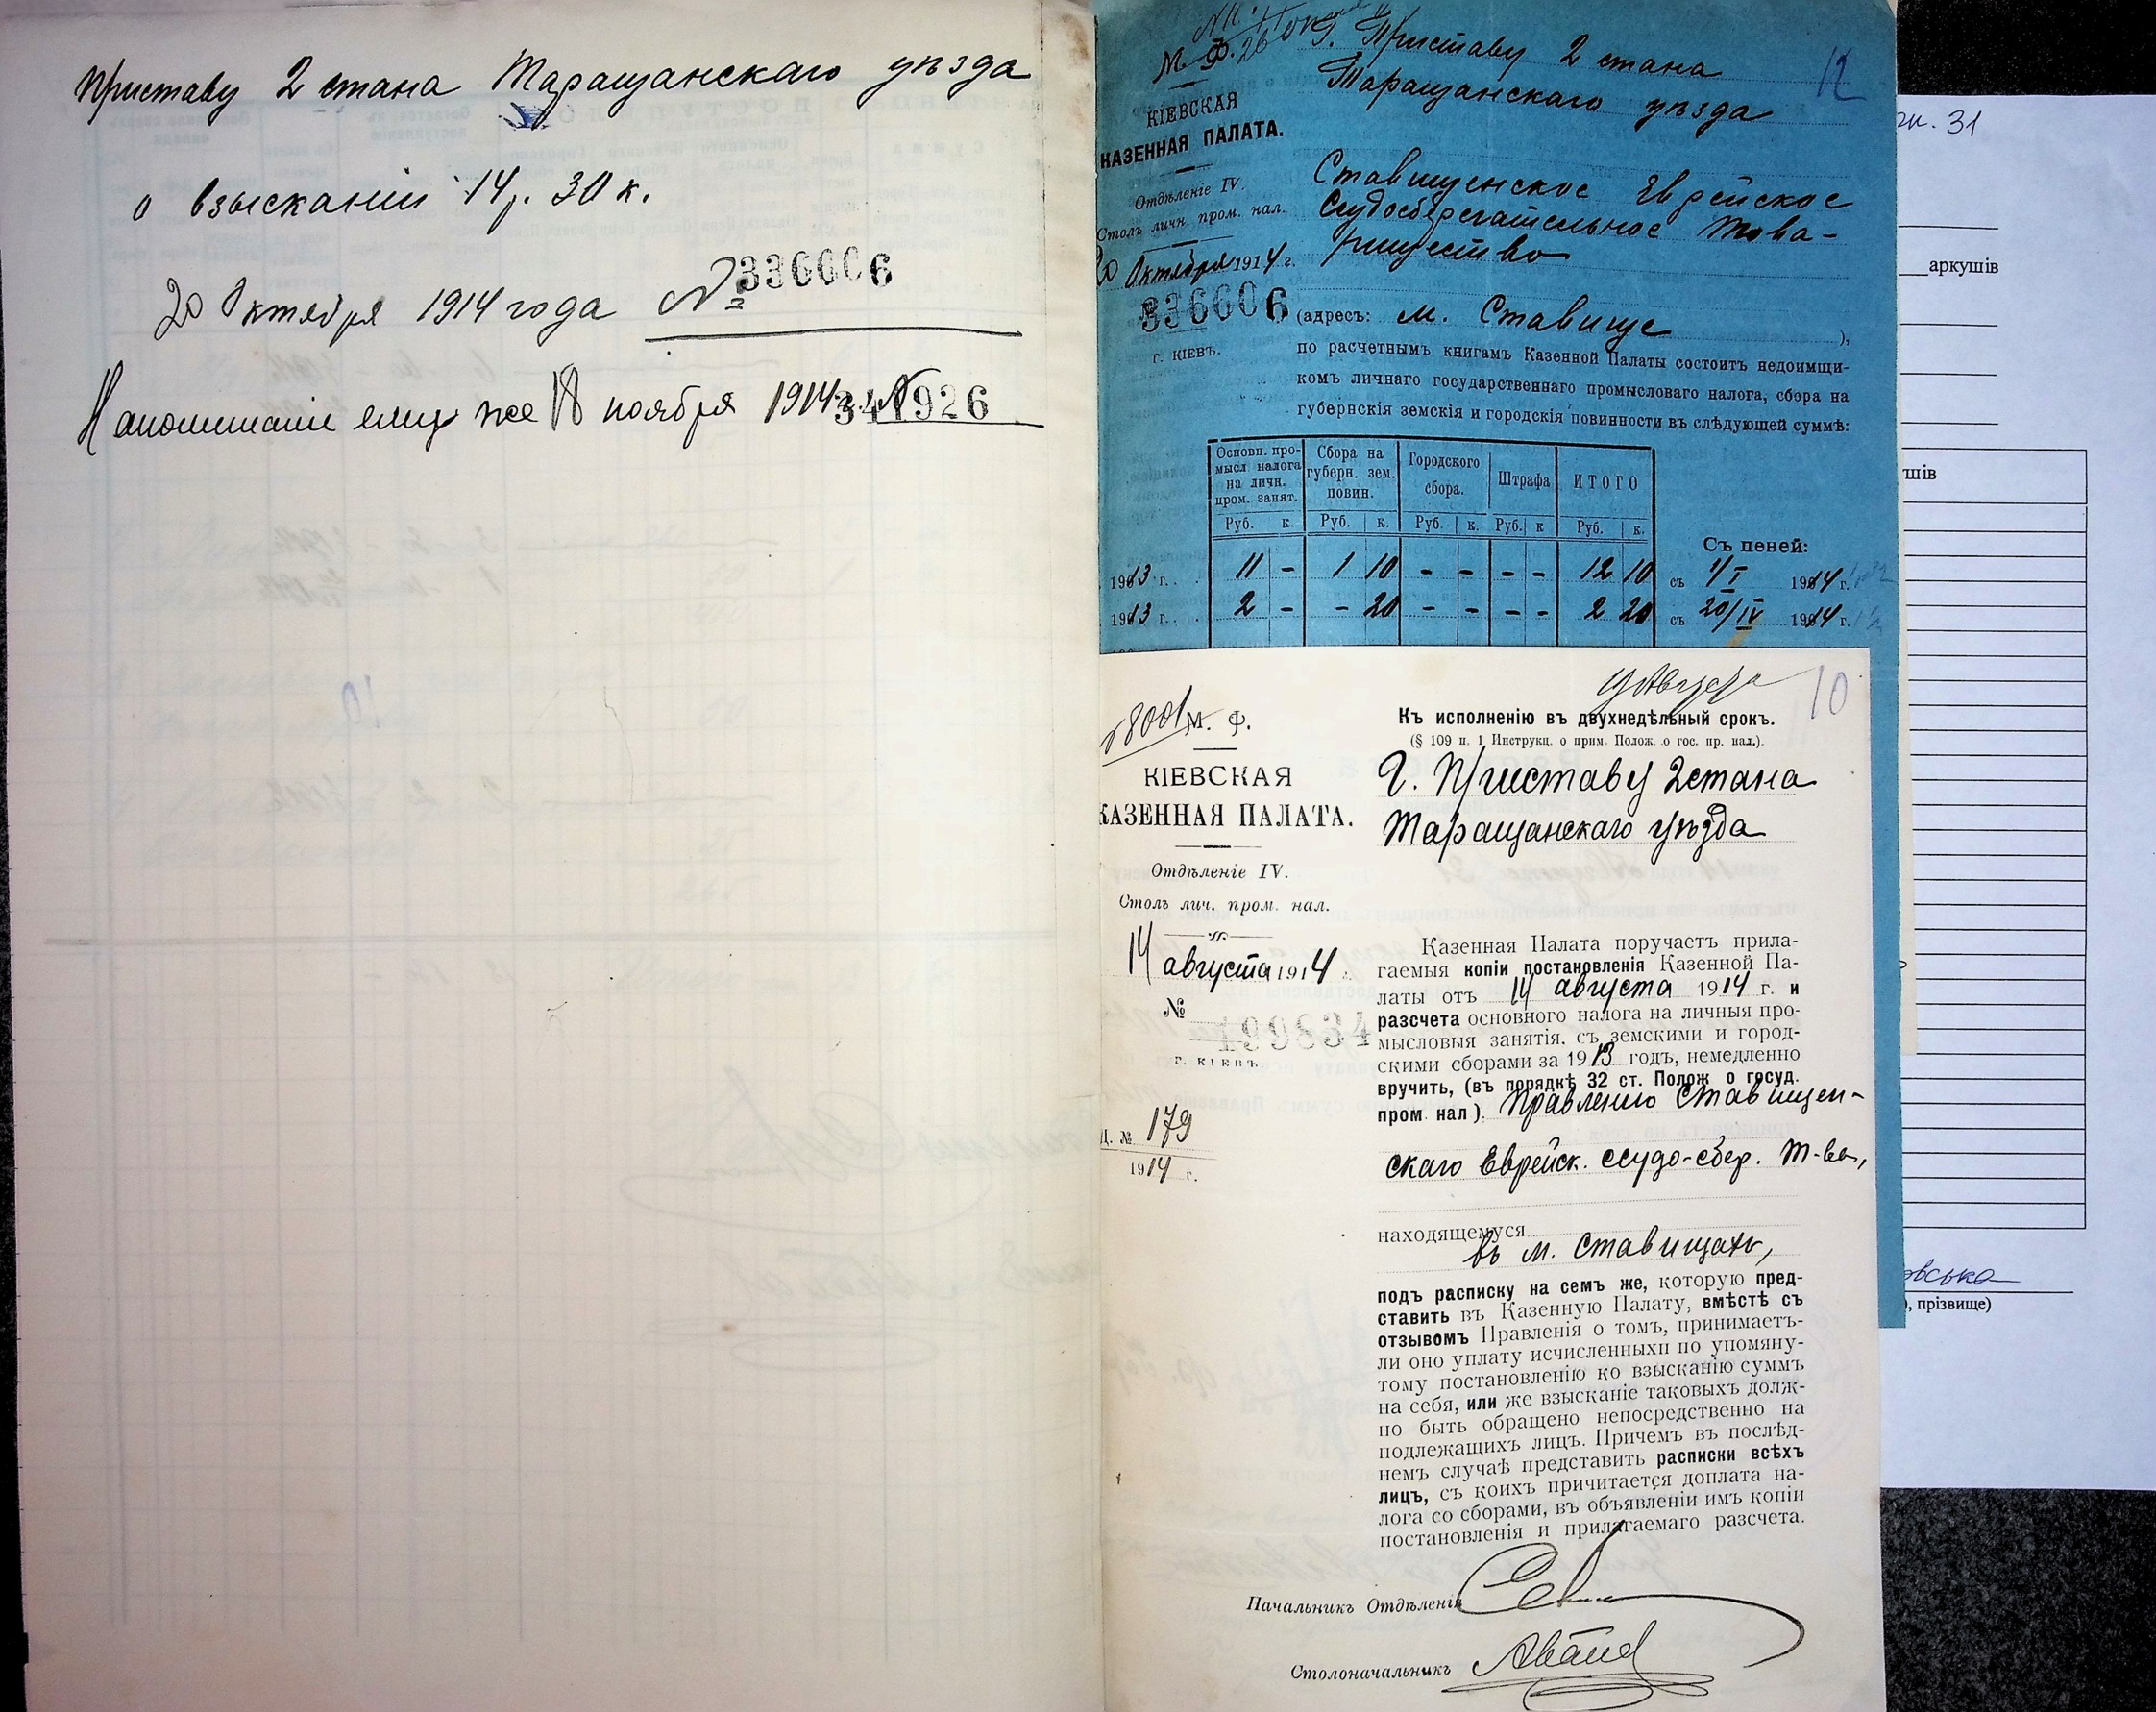 Приставу 2 стана Таращанскаго уѣзда
о взысканіи 14 р. 30 к.
20 Октября 1914 года № 336606
Напоминаніе ему же 18 ноября 1914 г. № 341926
М. Ф.
КІЕВСКАЯ
КАЗЕННАЯ ПАЛАТА.
Отдѣленіе IV.
Столъ личн. пром. нал.
20 Октября 1914 г.
336606
г. КІЕВЪ.
12
Г. Приставу 2 стана
Таращанскаго уѣзда
Ставищенское Еврейское
Ссудосберегательное Това-
рищество
(адресъ: м. Ставище ),
по расчетнымъ книгамъ Казенной Палаты состоитъ недоимщи-
комъ личнаго государственнаго промысловаго налога, сбора на
губернскія земскія и городскія повинности въ слѣдующей суммѣ:
Основн. про-
мысл. налога
на личн.
пром. занят.
Сбора на
губерн. зем.
повин.
Городского
сбора.
Штрафа
ИТОГО
Руб. к. Руб. к. Руб. к. Руб. к Руб. к.
Съ пеней:
1913 г. 11 - 1 10 - - - - 12 10 съ 1/I 1914 г.
1913 г. 2 - - 20 - - - - 2 20 съ 20/IV 1914 г.
М. Ф.
КІЕВСКАЯ
КАЗЕННАЯ ПАЛАТА.
Отдѣленіе IV.
Столъ лич. пром. нал.
14 августа 1914
№
199834
г. КІЕВЪ
Д. № 179
1914 г.
10
Къ исполненію въ двухнедѣльный срокъ.
(§ 109 п. 1 Инструкц. о прим. Полож. о гос. пр. нал.).
Г. Приставу 2 стана
Таращанскаго уѣзда
Казенная Палата поручаетъ прила-
гаемыя копіи постановленія Казенной Па-
латы отъ 14 августа 1914 г. и
разсчета основного налога на личныя про-
мысловыя занятія, съ земскими и город-
скими сборами за 1913 годъ, немедленно
вручить, (въ порядкѣ 32 ст. Полож о госуд.
пром. нал). Правленію Ставищен-
скаго Еврейск. ссудо-сбер. т-ва,
находящемуся
въ м. Ставищахъ,
подъ расписку на семъ же, которую пред-
ставить въ Казенную Палату, вмѣстѣ съ
отзывомъ Правленія о томъ, принимаетъ-
ли оно уплату исчисленныхп по упомяну-
тому постановленію ко взысканію суммъ
на себя, или же взысканіе таковыхъ долж-
но быть обращено непосредственно на
подлежащихъ лицъ. Причемъ въ послѣд-
немъ случаѣ представить расписки всѣхъ
лицъ, съ коихъ причитается доплата на-
лога со сборами, въ объявленіи имъ копіи
постановленія и прилагаемаго разсчета.
Начальникъ Отдѣленія
Столоначальникъ
31
аркушів
шів
, прізвище)